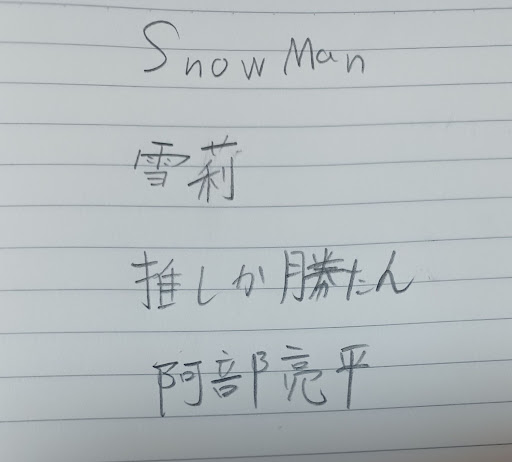 Snow Man
雪莉
推しか勝たん
阿部亮平